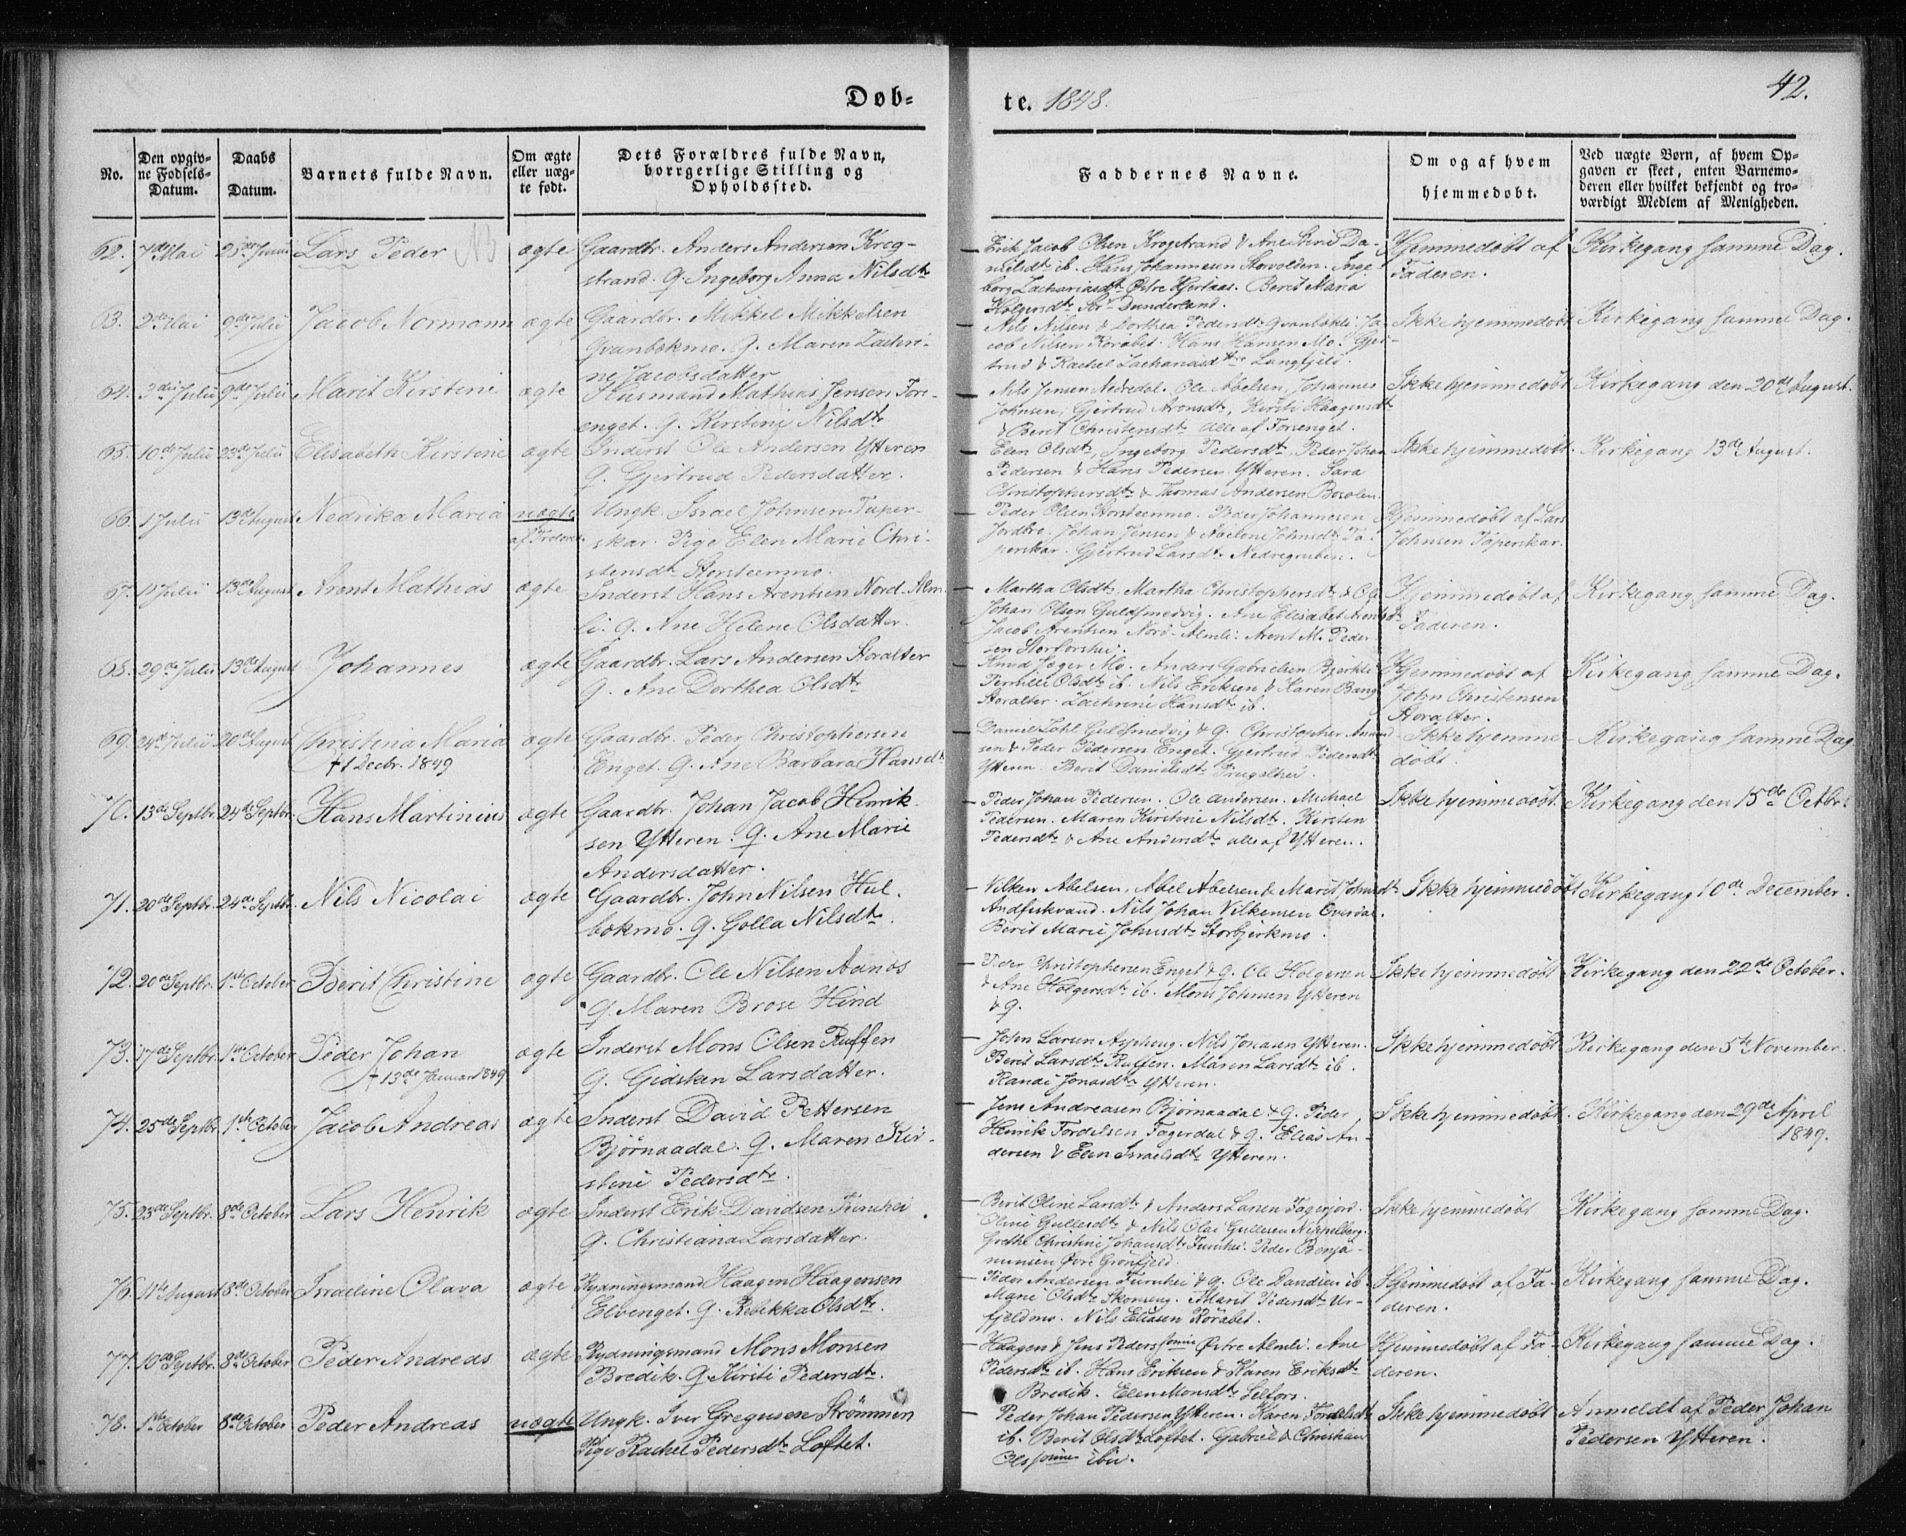 Døb-
te. 1848.
42.
No.
Den opgiv-
ne Fødsels-
Datum.
Daabs
Datum.
Barnets fulde Navn.
Om ægte
eller uæg-
te født.
Dets Forældres fulde Navn,
borrgerlige Stilling og
Opholdssted.
Faddernes Navne.
Om og af hvem
hjemmedøbt.
Ved uægte Børn, af hvem Op-
gaven er skeet, enten Barnemo-
deren eller hvilket bekjendt og tro-
værdigt Medlem af Menigheden.
62. 7de Mai 25de Juni Lars Peder NB ægte
Gaardbr. Anders Andersen Krog-
strand. Q. Ingeborg Anna Nilsdtr
Erik Jacob Olsen Krogstrand & Ane Da-
nielsdtr ib. Hans Johannesen Storvolden. Inge-
borg Zachariasdtr Østre Hjertaas. Berit Maria
Holgersdtr Dunderland.
Hjemmedøbt af
Faderen.
Kirkegang samme Dag.
63. 2de Mai 9de Julii Jacob Normann ægte
Gaardbr. Mikkel Mikkelsen
Qvanbekmo. Q. Maren Zachri-
ne Jacobsdatter
Nils Nilsen & Dorthea Pedersdtr Ja-
cob Nilsen Hans Hansen Mo. Gjer-
trud & Rachel Langfjeld.
Ikke hjemmedøbt
Kirkegang samme Dag.
64. 3die Julii 9de Julii Marit Kirstine ægte
Husmand Mathias Jensen Fors-
enget. Q. Kirstine Nilsdtr
Nils Jensen Nedredal. Ole Abelsen, Johannes
Johnsen, Gjertrud Aronsdtr, Kirsti Haagensdtr
& Berit Christensdtr alle af Forsenget.
Ikke hjemmedøbt
Kirkegang den 20de August.
65. 10de Julii 23de Julii Elisabeth Kirstine ægte
Inderst Ole Andersen Ytteren
Q. Gjertrud Pedersdatter.
Elen Olsdtr, Ingeborg Pedersdtr. Peder Johan
Pedersen & Hans Pedersen Ytteren. Sara
Christophersdtr & Thomas Andersen
Ikke hjemmedøbt.
Kirkegang 13de August.
66. 1 Julii 13de August Nedrika Maria uægte
Ungk. Israel Johnsen Taper-
skar. Pige Elen Marie Chri-
stensdtr Storsteenmo.
Peder Olsen Storsteenmo. Peder Johannesen
Jordbro. Johan Jensen & Abelone Johnsdtr Ta-
perskar. Gjertrud Larsdtr Nedregruben.
Hjemmedøbt af Lars
Johnsen Taperskar.
67. 11 Julii 13de August Arent Mathias ægte
Inderst Hans Arentsen Nord-Alm-
li. Q. Ane Helene Olsdatter.
Martha Olsdtr. Martha Christophersdtr & Ole
Johan Olsen Guldsmedvig. Ane Elisabet Arentsdtr
Jacob Arentsen Nord-Almli. Arent M. Peder-
sen Storforshei.
Hjemmedøbt af
Faderen.
Kirkegang samme Dag.
68. 29de Julii 13de August Johannes ægte
Gaardbr. Lars Andersen Storalter
Q. Ane Dorthea Olsdtr
Knud Jæger Mo. Anders Gabrielsen Bjerkli
Pernille Olsdtr ib. Nils Eriksen & Karen Bang
Storalter. Zachrine Hansdtr ib.
Hjemmedøbt af
John Christensen
Storalter.
Kirkegang samme Dag.
69. 24de Julii 20de August Christina Maria ægte
† 1 Decbr. 1849
Gaardbr. Peder Christophersen
Enget. Q. Ane Barbara Hansdtr
Daniel Guldsmedvig & Q. Christopher Amund-
sen & Peder Pedersen Enget. Gjertrud Pedersdtr
Ytteren. Berit Danielsdtr
Ikke hjemme-
døbt.
Kirkegang samme Dag.
70. 13de Septbr. 24de Septbr. Hans Martinius ægte
Gaardbr. Johan Jacob Henrik-
sen Ytteren. Q. Ane Marie
Andersdatter.
Peder Johan Pedersen. Ole Andersen. Michael
Pedersen. Maren Kirstine Nilsdtr. Kirsten
Pedersdtr & Ane Andersdtr alle af Ytteren.
Ikke hjemmedøbt.
Kirkegang den 15de Octbr.
71. 20de Septbr. 24de Septbr. Nils Nicolai ægte
Gaardbr. John Nilsen Hul-
bekmo. Q. Golla Nilsdtr.
Vilken Abelsen, Abel Abelsen & Marit Johnsdtr
Andfiskvand. Nils Johan Vilkensen Overdal.
Berit Marie Johnsdtr Storbjerkmo.
Ikke hjemmedøbt
Kirkegang 10de December.
72. 20de Septbr. 1ste October Berit Christine ægte
Gaardbr. Ole Nilsen Aanæs
Q. Maren Brose Hind
Peder Christophersen Enget & Q. Ole Holgersen
& Ane Holgersdtr ib. Mons Johnsen Ytteren
& Q.
Ikke hjemmedøbt
Kirkegang den 22de October.
73. 17de Septbr. 1ste October Peder Johan ægte
† 13de Januar 1849
Inderst Mons Olsen Ruffen
Q. Gidsken Larsdatter.
John Larsen Asphoug. Nils Jonasen Ytteren.
Berit Larsdtr Ruffen. Maren Larsdtr ib.
Randi Jonasdtr Ytteren.
Ikke hjemmedøbt
Kirkegang den 5te November.
74. 25de Septbr. 1ste October Jacob Andreas ægte
Inderst David Pettersen
Bjørnaadal. Q. Maren Kir-
stine Pedersdtr.
Jens Andreasen Bjørnaadal & Q. Peder
Henrik Fordelsen Fagerdal & Q. Elias An-
dersen & Elen Israelsdtr Ytteren.
Ikke hjemmedøbt
Kirkegang den 29de April
1849.
75. 23de Septbr. 8de October Lars Henrik ægte
Inderst Erik Davidsen Furuhei.
Q. Christiana Larsdatter.
Berit Oline Larsdtr & Anders Larsen Fagerjord.
Oline Gullesdtr & Nils Olai Gullesen Nippelberg.
Grethe Christine Johansdtr Furuhei. Peder Benja-
minsen Øvre Grønfjeld
Ikke hjemmedøbt
Kirkegang samme Dag.
76. 11te August 8de October Israeline Olava ægte
Rydningsmand Haagen Haagensen
Elvenget. Q. Rebekka Olsdtr.
Peder Andersen Furuhei & Q. Ole Davidsen ib.
Marie Olsdtr Skonseng. Marit Pedersdtr Ur-
fjeldmo. Nils Eliasen
Hjemmedøbt af Fa-
deren.
Kirkegang samme Dag.
77. 10de Septbr. 8de October Peder Andreas ægte
Rydningsmand Mons Monsen
Bredik. Q. Kirsti Pedersdtr.
Haagen & Jens Peders sønner Østre Almli. Ane
Pedersdtr ib. Hans Eriksen & Karen Eriksdtr
Bredik. Elen Monsdtr Selfors.
Hjemmedøbt af Fa-
deren.
Kirkegang samme Dag.
78. 1ste October 8de October Peder Andreas uægte
Ungk. Iver Gregusen Strømmen
Pige Rachel Pedersdtr Loftet.
Peder Johan Pedersen Ytteren. Karen Fordelsdtr
ib. Berit Olsdtr Loftet. Gabriel & Christian
Ols sønner ibid.
Ikke hjemmedøbt
Anmeldt af Peder Johan
Pedersen Ytteren.